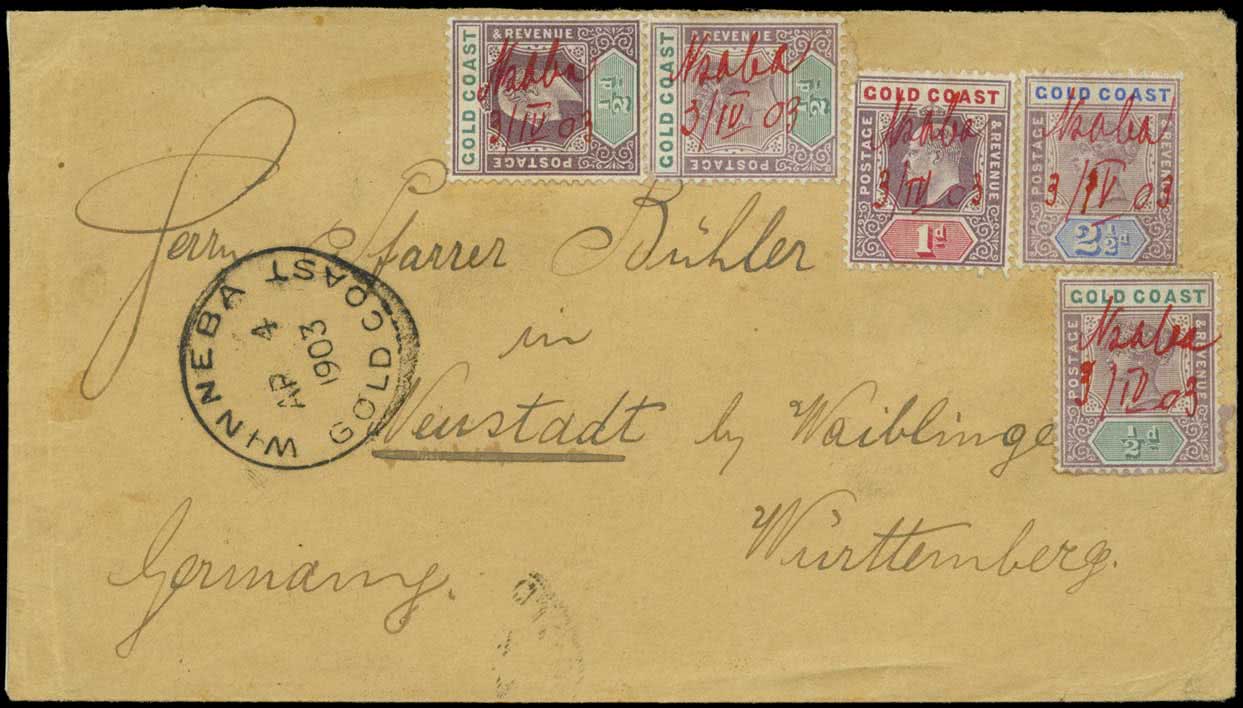 GOLD COAST
& REVENUE
POSTAGE
½d
Nsaba
3/IV 03
GOLD COAST
& REVENUE
POSTAGE
½d
Nsaba
3/IV 03
GOLD COAST
POSTAGE
& REVENUE
1d
Nsaba
3/IV 03
GOLD COAST
POSTAGE
& REVENUE
2½d
Nsaba
3/IV 03
GOLD COAST
POSTAGE
& REVENUE
½d
Nsaba
3/IV 03
Herrn Pfarrer Bühler
in
Neustadt by Waiblinge
Württemberg.
Germany.
WINNEBA
GOLD COAST
AP 4
1903